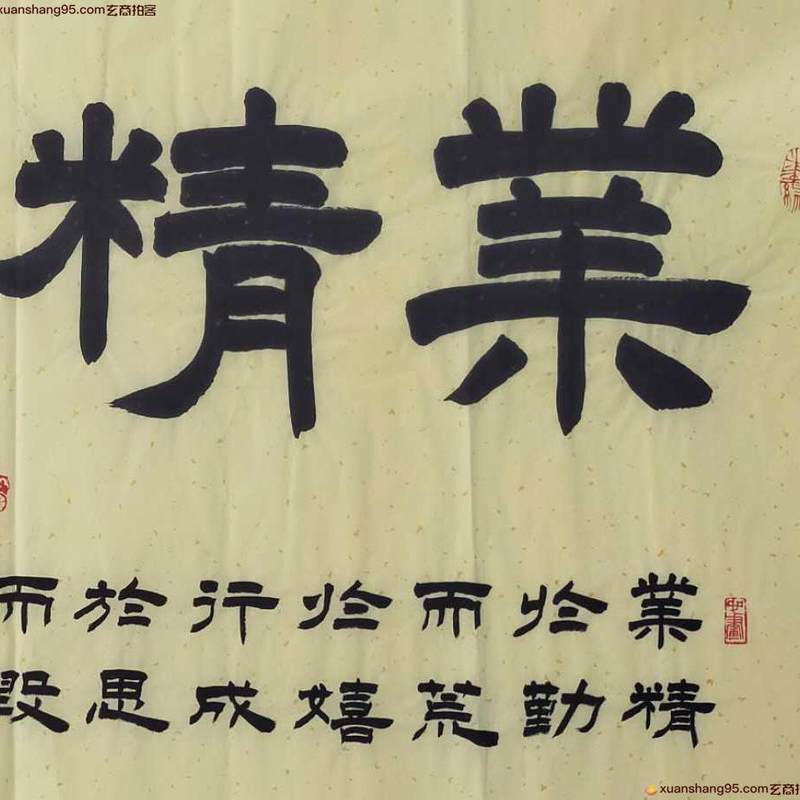 xuanshang95.com玄商拍客
業精
業精
於勤
而荒
於嬉
行成
於思
而毀
xuanshang95.com玄商拍客